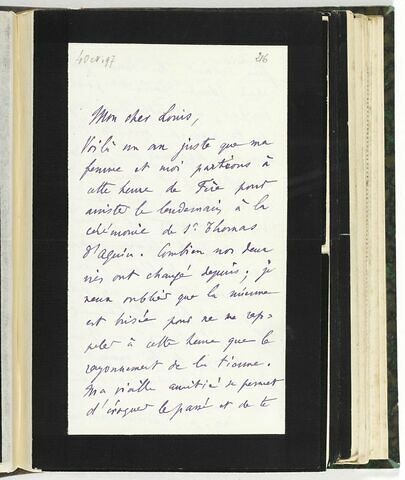 4 Oct. 97
216
Mon cher Louis,
Voilà un an juste que ma
femme et moi partions à
cette heure de Fère pour
assister le lendemain à la
cérémonie de St Thomas
d'Aquin. Combien nos deux
vies ont changé depuis ; je
veux oublier que la mienne
est brisée pour ne me rap-
peler à cette heure que le
rayonnement de la tienne.
Ma vieille amitié se permet
d'évoquer le passé et de te